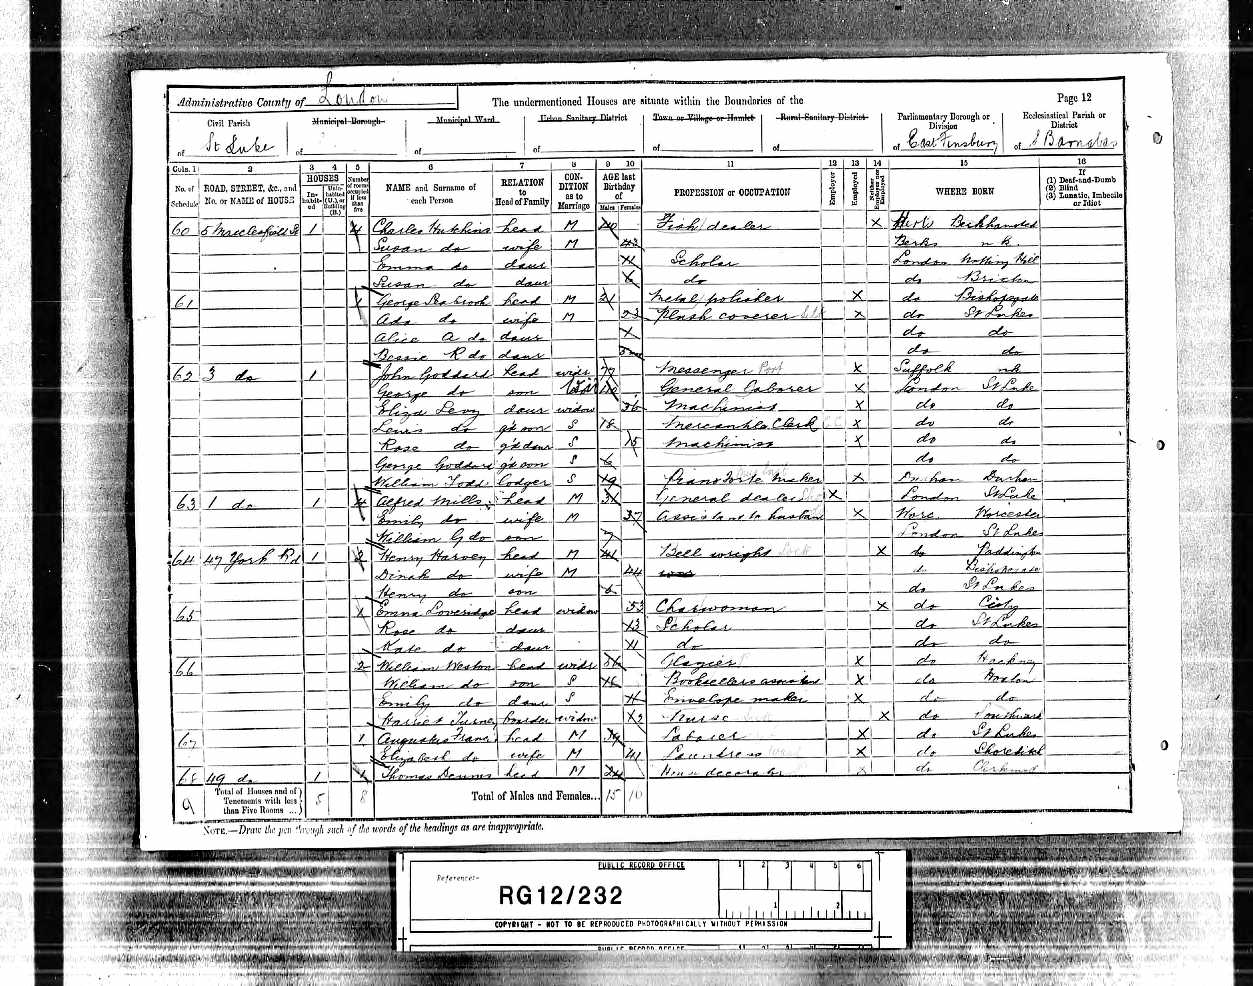 Administrative County of London
The undermentioned Houses are situate within the Boundaries of the
Page 12
Civil Parish of St Luke
Municipal Borough of
Municipal Ward of
Urban Sanitary District of
Town or Village or Hamlet of
Rural Sanitary District of
Parliamentary Borough or Division of East Finsbury
Ecclesiastical Parish or District of S Barnabas
Cols. 1 2 3 4 5 6 7 8 9 10 11 12 13 14 15 16
No. of Schedule
ROAD, STREET, &c., and No. or NAME of HOUSE
HOUSES
Inhabited
Uninhabited (U.), or Building (B.)
Number of rooms occupied if less than five
NAME and Surname of each Person
RELATION to Head of Family
CONDITION as to Marriage
AGE last Birthday of
Males Females
PROFESSION or OCCUPATION
Employer
Employed
Neither Employer nor Employed
WHERE BORN
If (1) Deaf-and-Dumb (2) Blind (3) Lunatic, Imbecile or Idiot
60 5 Macclesfield St 1 4 Charles Hutchins head M 40 Fish dealer X Herts Berkhamsted
Susan do wife M 43 Berks n.k.
Emma do daur 11 Scholar London Notting Hill
Susan do daur 6 do do Brixton
61 1 George Seabrook head M 21 Metal polisher X do Bishopsgate
Ada do wife M 23 Plush coverer X do St Lukes
Alice A do daur 1 do do
Bessie R do daur do do
62 3 do 1 John Goddard head widr 77 Messenger X Suffolk nk
George do son 40 General laborer X London St Luke
Eliza Levy daur widow 36 Machinist X do do
Lewis do g'd son S 18 Mercantile Clerk X do do
Rose do g'd daur S 15 Machinist X do do
George Goddard g'd son S 6 do do
William Todd lodger S 19 Pianoforte maker X Durham Durham
63 1 do 1 4 Alfred Mills head M 31 General dealer X London St Luke
Emily do wife M 37 Assistant to husband X Worc. Worcester
William G do son 7 London St Lukes
64 47 York Rd 1 2 Henry Harvey head M 41 Bell wright X do Paddington
Dinah do wife M 44 do Bishopsgate
Henry do son 6 do St Lukes
65 1 Emma Loveridge head widow 53 Charwoman X do City
Rose do daur 13 Scholar do St Lukes
Kate do daur 11 do do do
66 2 William Weston head widr 56 Glazier X do Hackney
William do son S 18 Booksellers assistant X do Hoxton
Emily do daur S Envelope maker X do do
Harriet Turney boarder widow Nurse X do Southwark
67 1 Augustus Francis head M 39 Laborer X do St Lukes
Elizabeth do wife M 41 Laundress X do Shoreditch
68 49 do 1 1 Thomas Dennis head M 24 House decorator X do
9
Total of Houses and of Tenements with less than Five Rooms ... 5 8
Total of Males and Females... 15 10
NOTE.—Draw the pen through such of the words of the headings as are inappropriate.
PUBLIC RECORD OFFICE
1 2 3 4 5 6
Reference:-
RG12/232
1 2
COPYRIGHT - NOT TO BE REPRODUCED PHOTOGRAPHICALLY WITHOUT PERMISSION
PUBLIC RECORD OFFICE